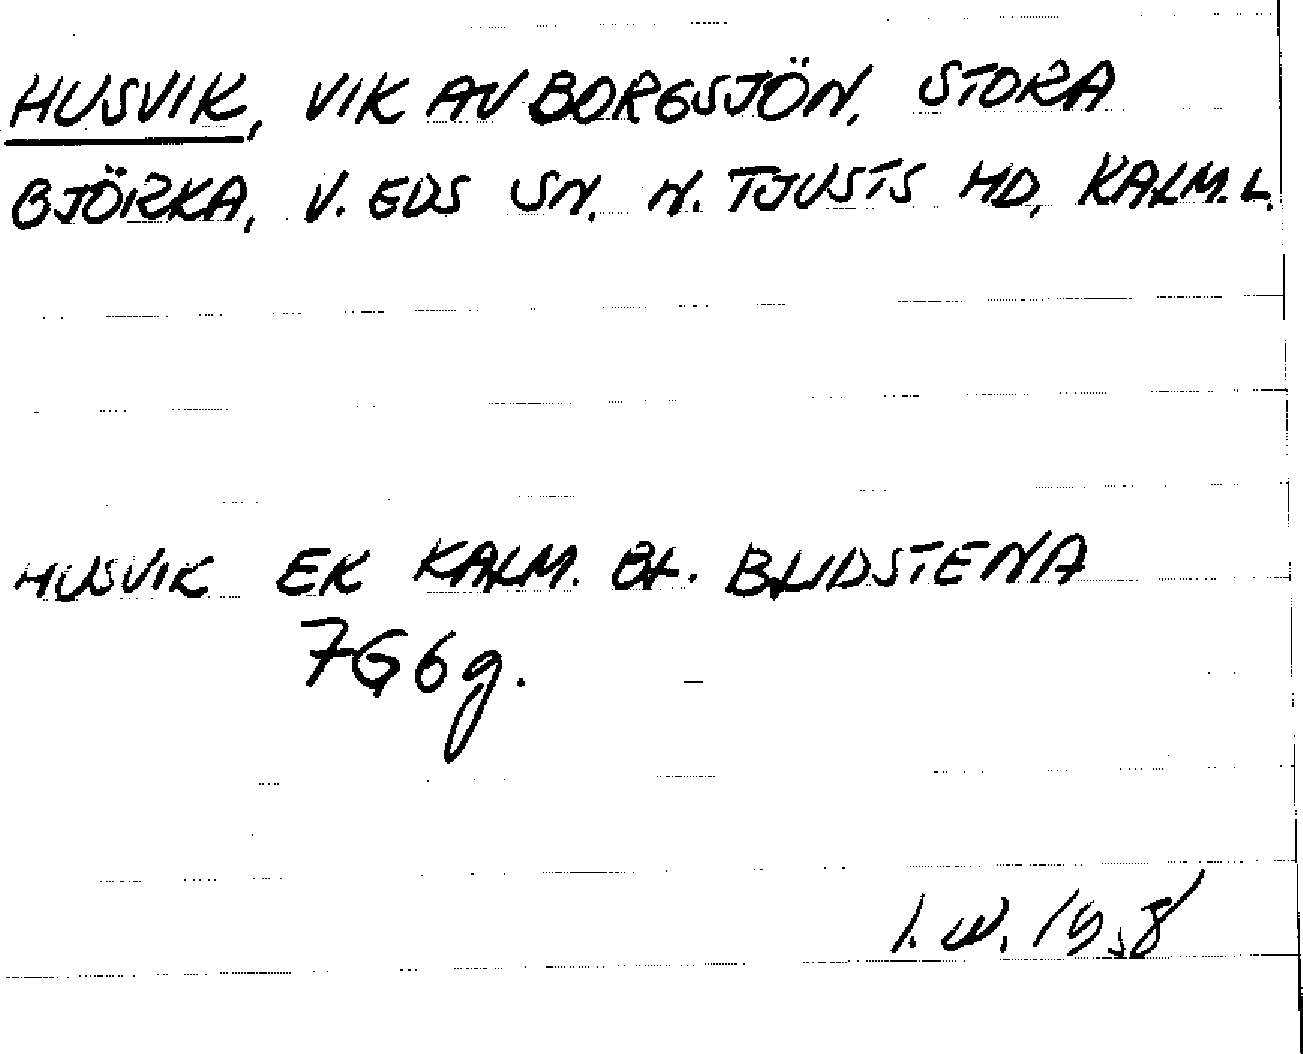 HUSVIK, VIK AV BORGSJÖN, STORA
BJÖRKA, V. EDS SN, N. TJUSTS HD, KALM. L.
HUSVIK EK KALM. BL. BLIDSTENA
7G6g.
I. W. 1958